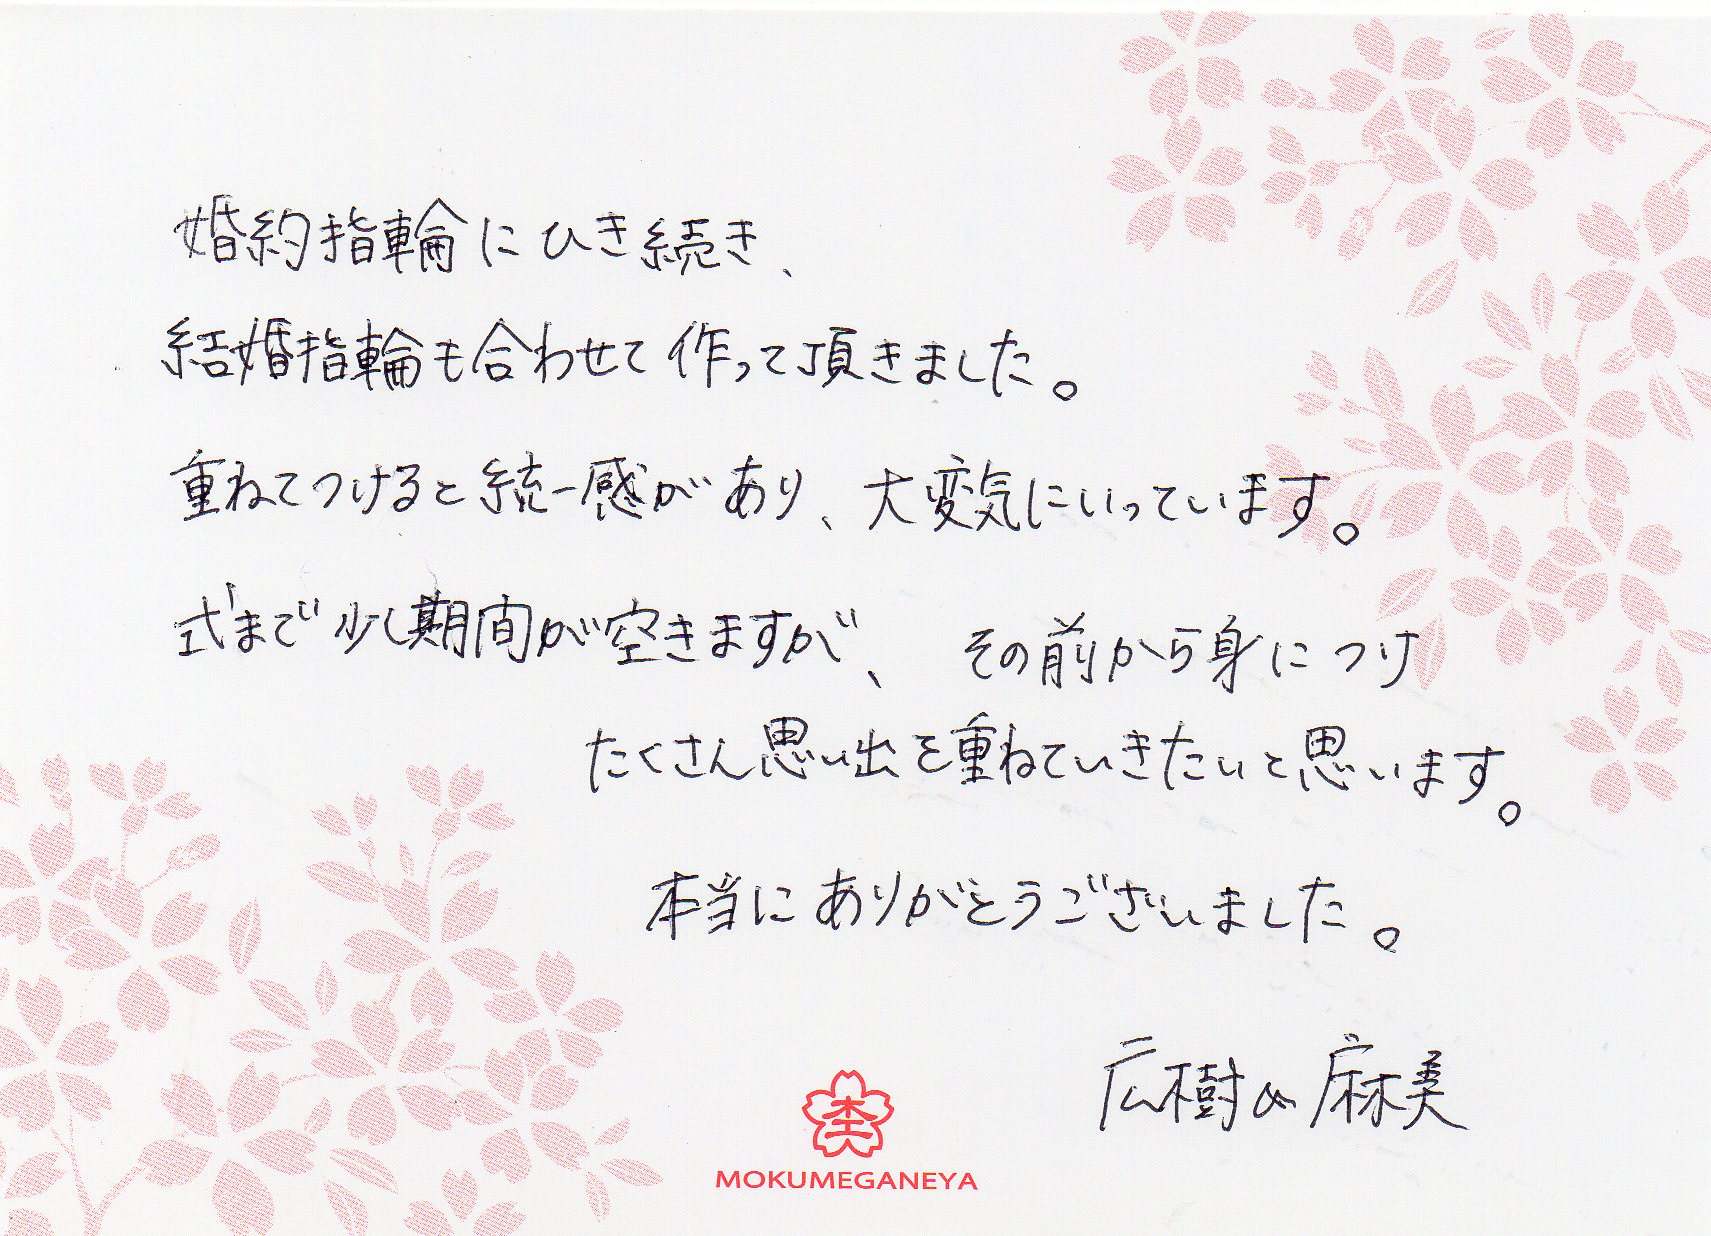 婚約指輪にひき続き、
結婚指輪も合わせて作って頂きました。
重ねてつけると統一感があり、大変気にいっています。
式まで少し期間が空きますが、その前から身につけ
たくさん思い出を重ねていきたいと思います。
本当にありがとうございました。
広樹&麻美
MOKUMEGANEYA